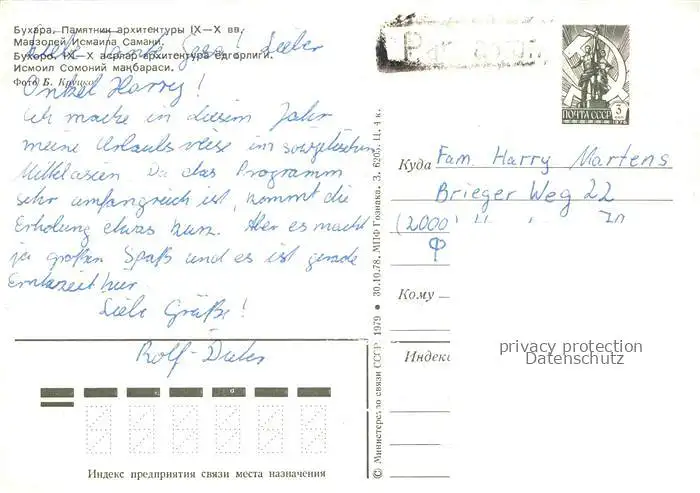 Бухара. Памятник архитектуры IX—X вв.
Мавзолей Исмаила Самани.
Бухоро. IX—X асрлар архитектура ёдгорлиги.
Исмоил Сомоний мақбараси.
Фото Б. Круцко
Liebe Tante Gera! Lieber
Onkel Harry!
Ich mache in diesem Jahr
meine Urlaubsreise im sowjetischen
Mittelasien. Da das Programm
sehr umfangreich ist, kommt die
Erholung etwas kurz. Aber es macht
ja großen Spaß und es ist gerade
Erntezeit hier.
Liebe Grüße!
Rolf-Dieter
Индекс предприятия связи места назначения
© Министерство связи СССР, 1979 • 30.10.78. МПФ Гознака. З. 6205. Ц. 4 к.
ПОЧТА СССР
3
1976
Куда Fam. Harry Martens
Brieger Weg 22
(2000
Кому
Индекс
privacy protection
Datenschutz